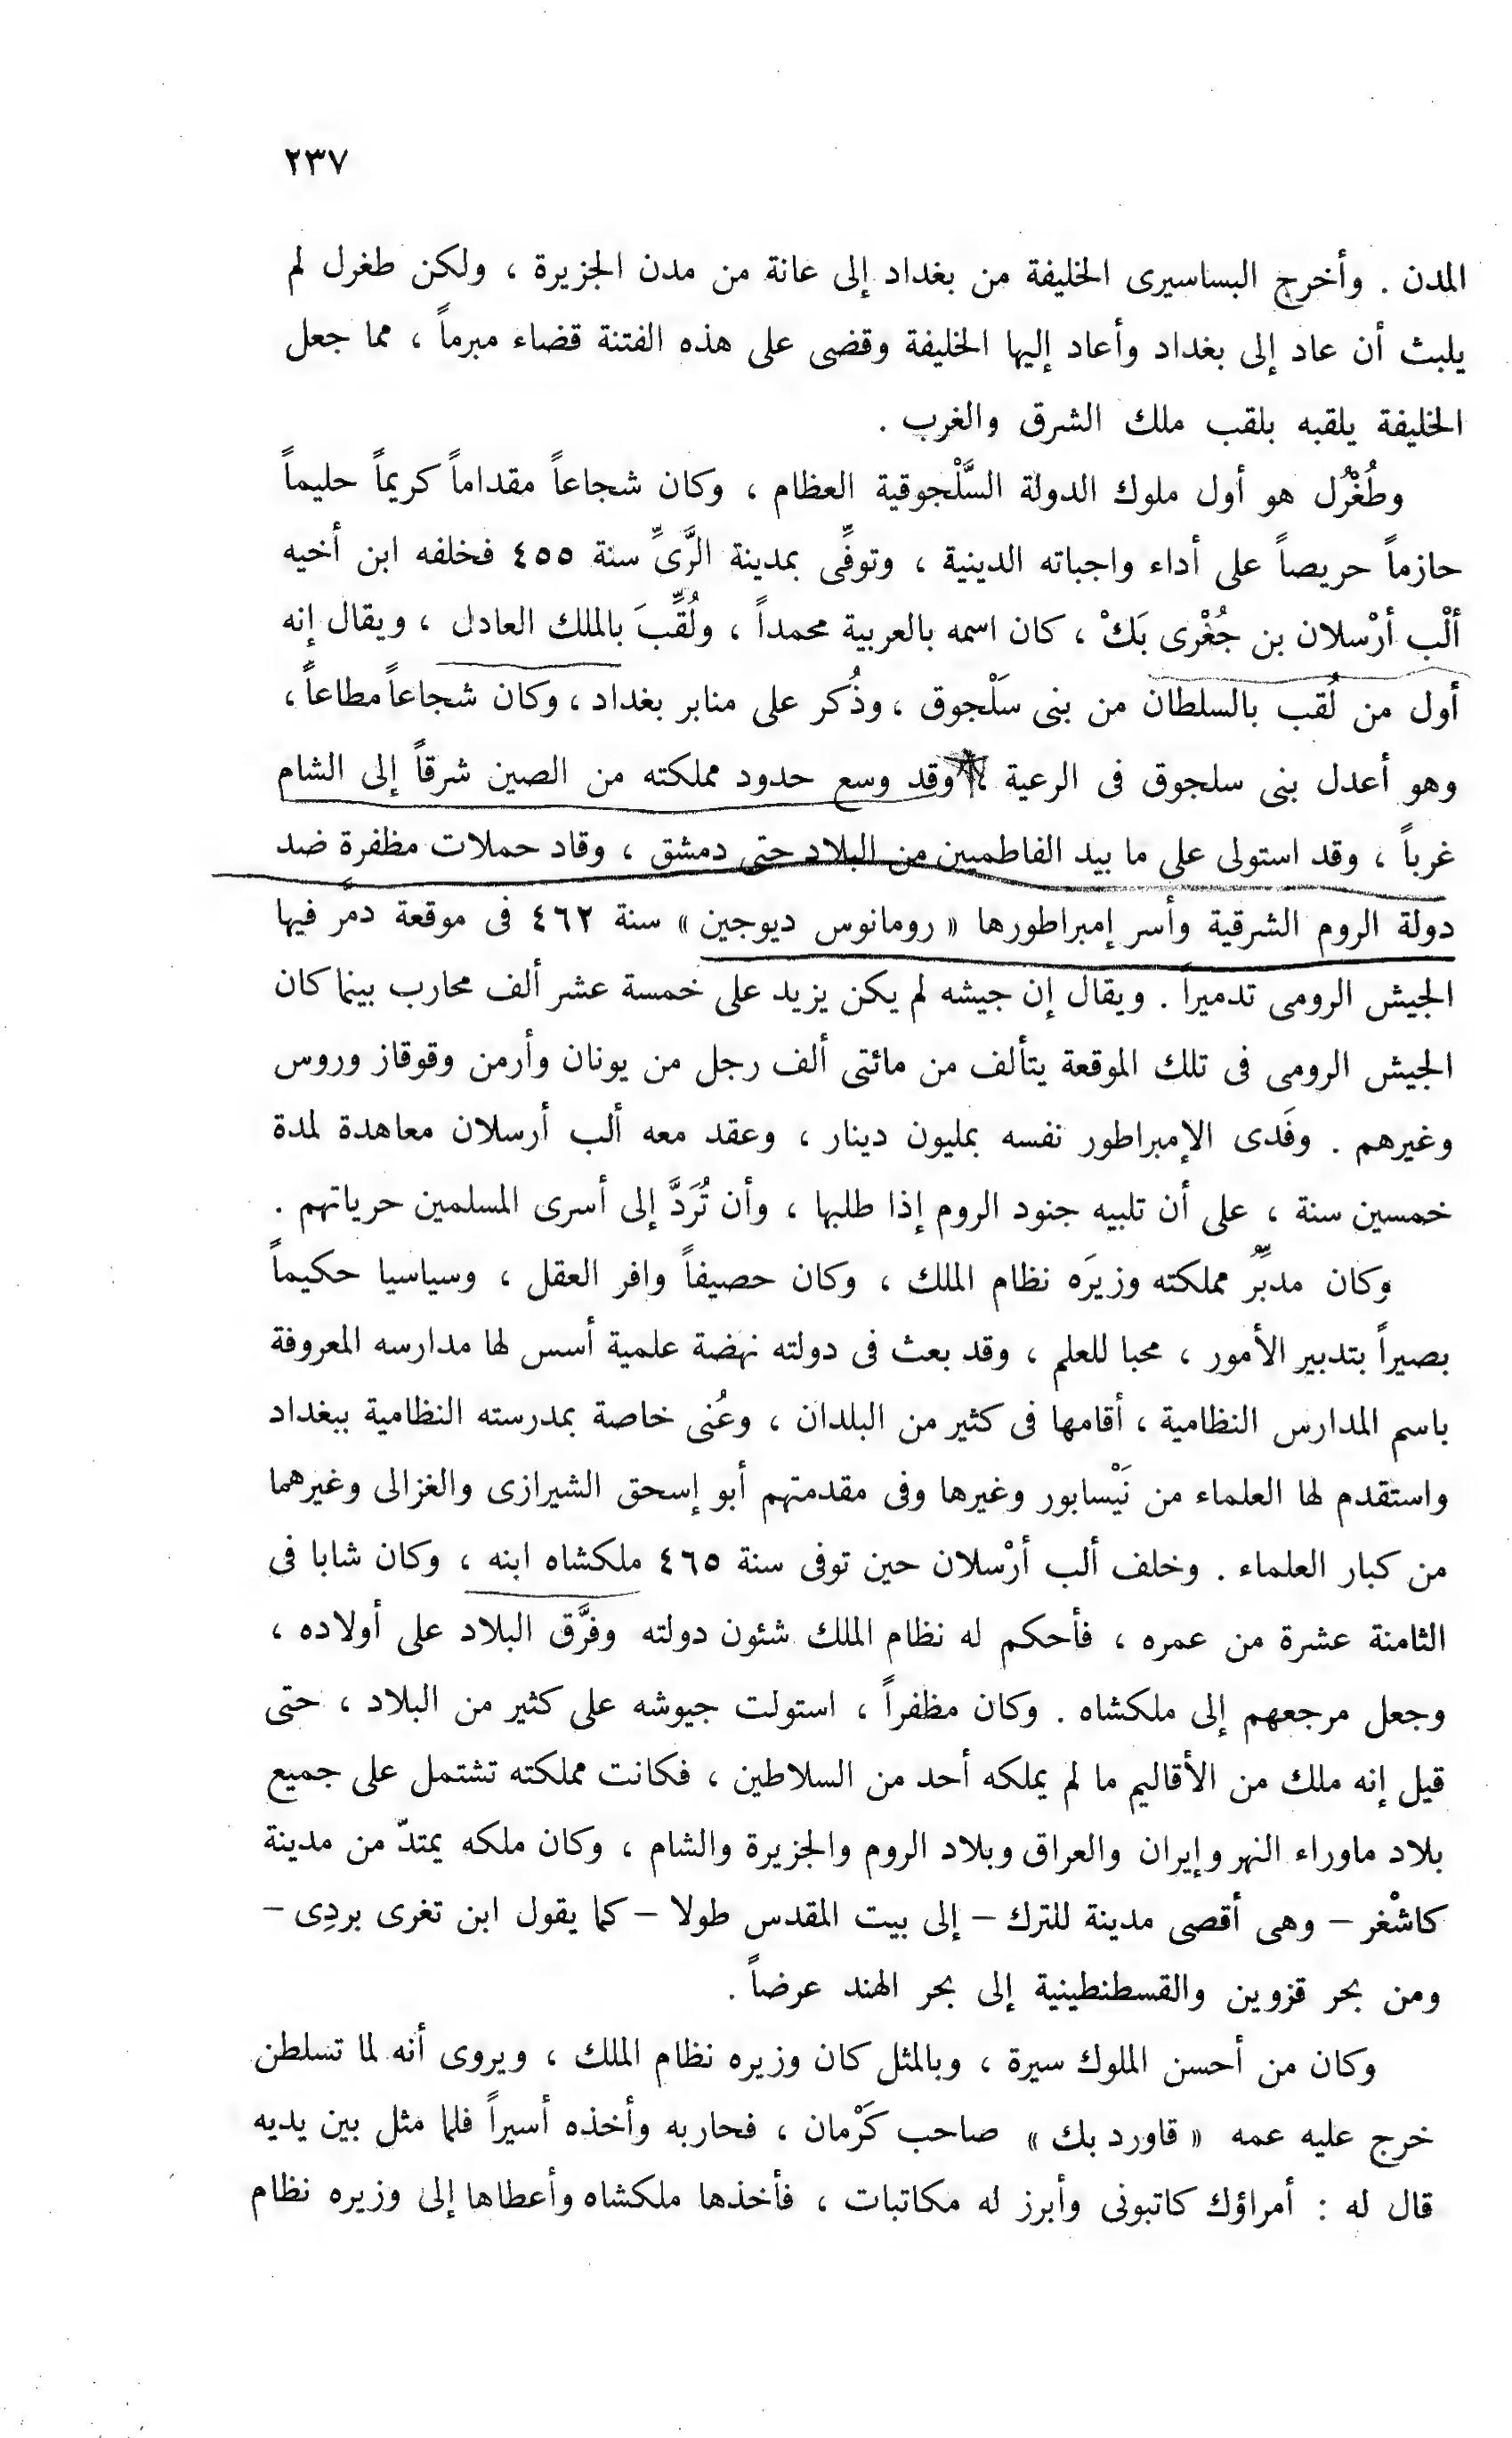 ٢٣٧
المدن . وأخرج البساسيرى الخليفة من بغداد إلى عانة من مدن الجزيرة ، ولكن طغرل لم
يلبث أن عاد إلى بغداد وأعاد إليها الخليفة وقضى على هذه الفتنة قضاء مبرماً ، مما جعل
الخليفة يلقبه بلقب ملك الشرق والغرب .
وطُغْرُل هو أول ملوك الدولة السَّلْجوقية العظام ، وكان شجاعاً مقداماً كريماً حليماً
حازماً حريصاً على أداء واجباته الدينية ، وتوفِّى بمدينة الرَّىِّ سنة ٤٥٥ فخلفه ابن أخيه
ألْب أرْسلان بن جُغْرى بَكْ ، كان اسمه بالعربية محمداً ، ولُقِّبَ بالملك العادل ، ويقال إنه
أول من لُقب بالسلطان من بنى سَلْجوق ، وذُكر على منابر بغداد ، وكان شجاعاً مطاعاً ،
وهو أعدل بنى سلجوق فى الرعية ، وقد وسع حدود مملكته من الصين شرقاً إلى الشام
غرباً ، وقد استولى على ما بيد الفاطميين من البلاد حتى دمشق ، وقاد حملات مظفرة ضد
دولة الروم الشرقية وأسر إمبراطورها « رومانوس ديوجين » سنة ٤٦٢ فى موقعة دمَّر فيها
الجيش الرومى تدميراً . ويقال إن جيشه لم يكن يزيد على خمسة عشر ألف محارب بينما كان
الجيش الرومى فى تلك الموقعة يتألف من مائتى ألف رجل من يونان وأرمن وقوقاز وروس
وغيرهم . وفَدى الإمبراطور نفسه بمليون دينار ، وعقد معه ألب أرسلان معاهدة لمدة
خمسين سنة ، على أن تلبيه جنود الروم إذا طلبها ، وأن تُرَدَّ إلى أسرى المسلمين حرياتهم .
وكان مدبِّرُ مملكته وزيرَه نظام الملك ، وكان حصيفاً وافر العقل ، وسياسيا حكيماً
بصيراً بتدبير الأمور ، محبا للعلم ، وقد بعث فى دولته نهضة علمية أسس لها مدارسه المعروفة
باسم المدارس النظامية ، أقامها فى كثير من البلدان ، وعُنى خاصة بمدرسته النظامية ببغداد
واستقدم لها العلماء من نَيْسابور وغيرها وفى مقدمتهم أبو إسحق الشيرازى والغزالى وغيرهما
من كبار العلماء . وخلف ألب أرْسلان حين توفى سنة ٤٦٥ ملكشاه ابنه ، وكان شابا فى
الثامنة عشرة من عمره ، فأحكم له نظام الملك شئون دولته وفرَّق البلاد على أولاده ،
وجعل مرجعهم إلى ملكشاه . وكان مظفراً ، استولت جيوشه على كثير من البلاد ، حتى
قيل إنه ملك من الأقاليم ما لم يملكه أحد من السلاطين ، فكانت مملكته تشتمل على جميع
بلاد ماوراء النهر وإيران والعراق وبلاد الروم والجزيرة والشام ، وكان ملكه يمتدّ من مدينة
كاشْغر – وهى أقصى مدينة للترك – إلى بيت المقدس طولا – كما يقول ابن تغرى بردِى –
ومن بحر قزوين والقسطنطينية إلى بحر الهند عرضاً .
وكان من أحسن الملوك سيرة ، وبالمثل كان وزيره نظام الملك ، ويروى أنه لما تسلطن
خرج عليه عمه « قاورد بك » صاحب كَرْمان ، فحاربه وأخذه أسيراً فلما مثل بين يديه
قال له : أمراؤك كاتبونى وأبرز له مكاتبات ، فأخذها ملكشاه وأعطاها إلى وزيره نظام